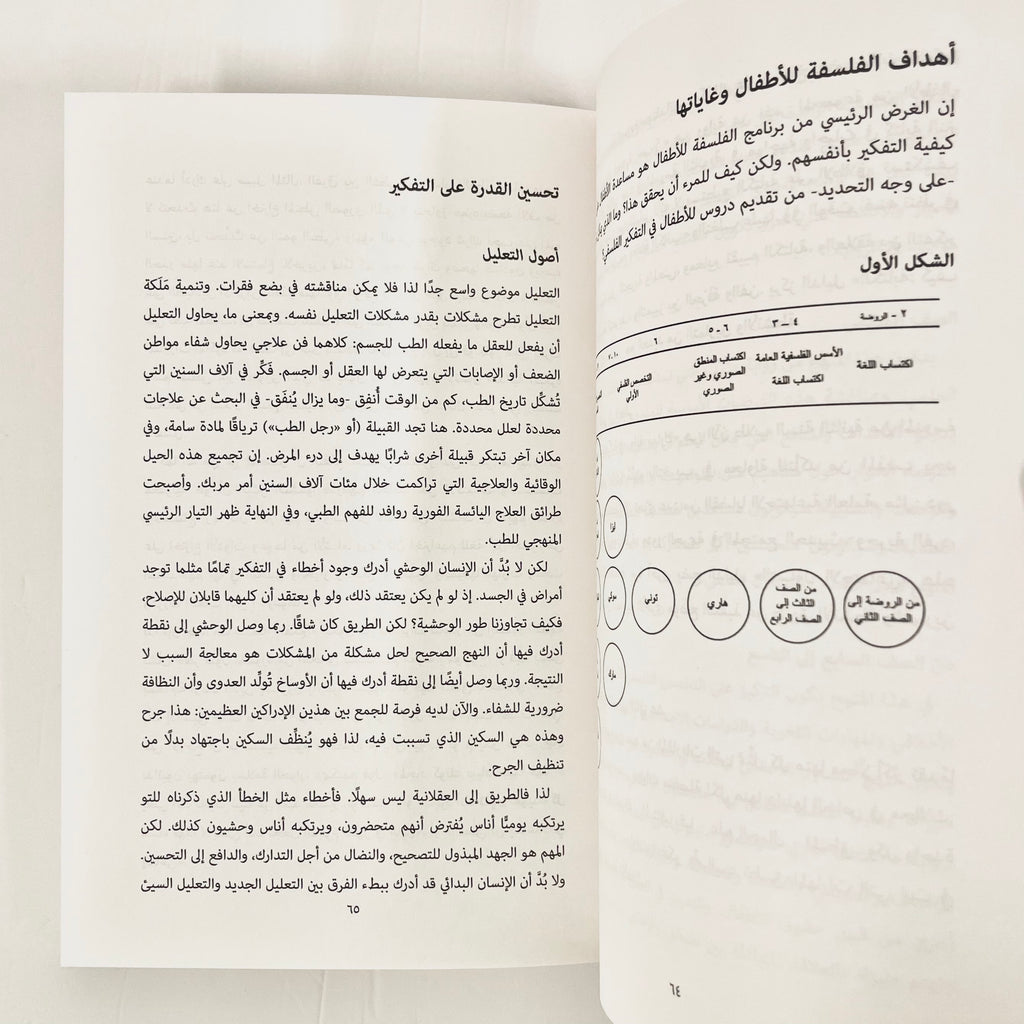 أهداف الفلسفة للأطفال وغاياتها
إن الغرض الرئيسي من برنامج الفلسفة للأطفال هو مساعدة
كيفية التفكير بأنفسهم. ولكن كيف للمرء أن يحقق هذا؟ وما الذي
-على وجه التحديد- من تقديم دروس للأطفال في التفكير الفلسفي؟
الشكل الأول
٢ - الروضة
٤ - ٣
٦ - ٥
٦
اكتساب اللغة
الأسس الفلسفية العامة
اكتساب اللغة
اكتساب المنطق
الصوري وغير
الصوري
التخصص الفلسفي
الأولي
من الروضة إلى
الصف الثاني
من الصف
الثالث إلى
الصف الرابع
هاري
توني
ليزا
سوكي
مارك
٦٤
تحسين القدرة على التفكير
أصول التعليل
التعليل موضوع واسع جدًا لذا فلا يمكن مناقشته في بضع فقرات. وتنمية مَلَكة
التعليل تطرح مشكلات بقدر مشكلات التعليل نفسه. وبمعنى ما، يحاول التعليل
أن يفعل للعقل ما يفعله الطب للجسم: كلاهما فن علاجي يحاول شفاء مواطن
الضعف أو الإصابات التي يتعرض لها العقل أو الجسم. فَكِّر في آلاف السنين التي
تُشكِّل تاريخ الطب، كم من الوقت أُنفِق -وما يزال يُنفَق- في البحث عن علاجات
محددة لعلل محددة. هنا تجد القبيلة (أو «رجل الطب») ترياقًا لمادة سامة، وفي
مكان آخر تبتكر قبيلة أخرى شرابًا يهدف إلى درء المرض. إن تجميع هذه الحيل
الوقائية والعلاجية التي تراكمت خلال مئات آلاف السنين أمر مربك. وأصبحت
طرائق العلاج اليائسة الفورية روافد للفهم الطبي، وفي النهاية ظهر التيار الرئيسي
المنهجي للطب.
لكن لا بُدَّ أن الإنسان الوحشي أدرك وجود أخطاء في التفكير تمامًا مثلما توجد
أمراض في الجسد. إذ لو لم يكن يعتقد ذلك، ولو لم يعتقد أن كليهما قابلان للإصلاح،
فكيف تجاوزنا طور الوحشية؟ لكن الطريق كان شاقًا. ربما وصل الوحشي إلى نقطة
أدرك فيها أن النهج الصحيح لحل مشكلة من المشكلات هو معالجة السبب لا
النتيجة. وربما وصل أيضًا إلى نقطة أدرك فيها أن الأوساخ تُولِّد العدوى وأن النظافة
ضرورية للشفاء. والآن لديه فرصة للجمع بين هذين الإدراكين العظيمين: هذا جرح
وهذه هي السكين الذي تسببت فيه، لذا فهو يُنظِّف السكين باجتهاد بدلًا من
تنظيف الجرح.
لذا فالطريق إلى العقلانية ليس سهلًا. فأخطاء مثل الخطأ الذي ذكرناه للتو
يرتكبه يوميًّا أناس يُفترض أنهم متحضرون، ويرتكبه أناس وحشيون كذلك. لكن
المهم هو الجهد المبذول للتصحيح، والنضال من أجل التدارك، والدافع إلى التحسين.
ولا بُدَّ أن الإنسان البدائي قد أدرك ببطء الفرق بين التعليل الجديد والتعليل السيئ
٦٥